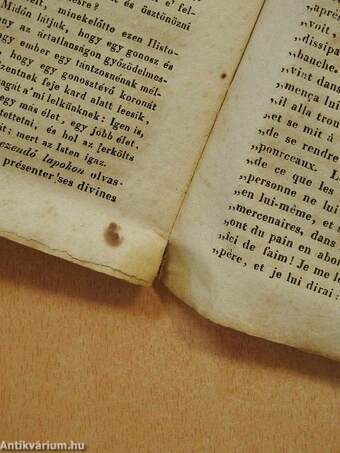 és ösztönözni
Midőn látjuk, hogy egy gonosz és
minekelőtte ezen Histo-
az ártatlanságon győzödelmes-
egy ember egy tántzosnénak
hogy egy gonosztévő koronát
szentnek feje kard alatt leesik,
a'mi lelkünknek: Igen is,
egy más élet, egy jóbb élet,
és hol az ferkölts
mert az Isten igaz.
lapokon olvas-
présenter'ses divines
„voit,
„dissipa
„bauche,
„vint dans
„mença lui
„il alla trou
„et se mit à
„de se rendre
„pourceaux. L
„de ce que les
„personne ne lui
„en lui-même, et
„mercenaires, dans
„ont du pain en abon
„ici de faim! Je me le
„père, et je lui dirai:
Antikvárium.hu